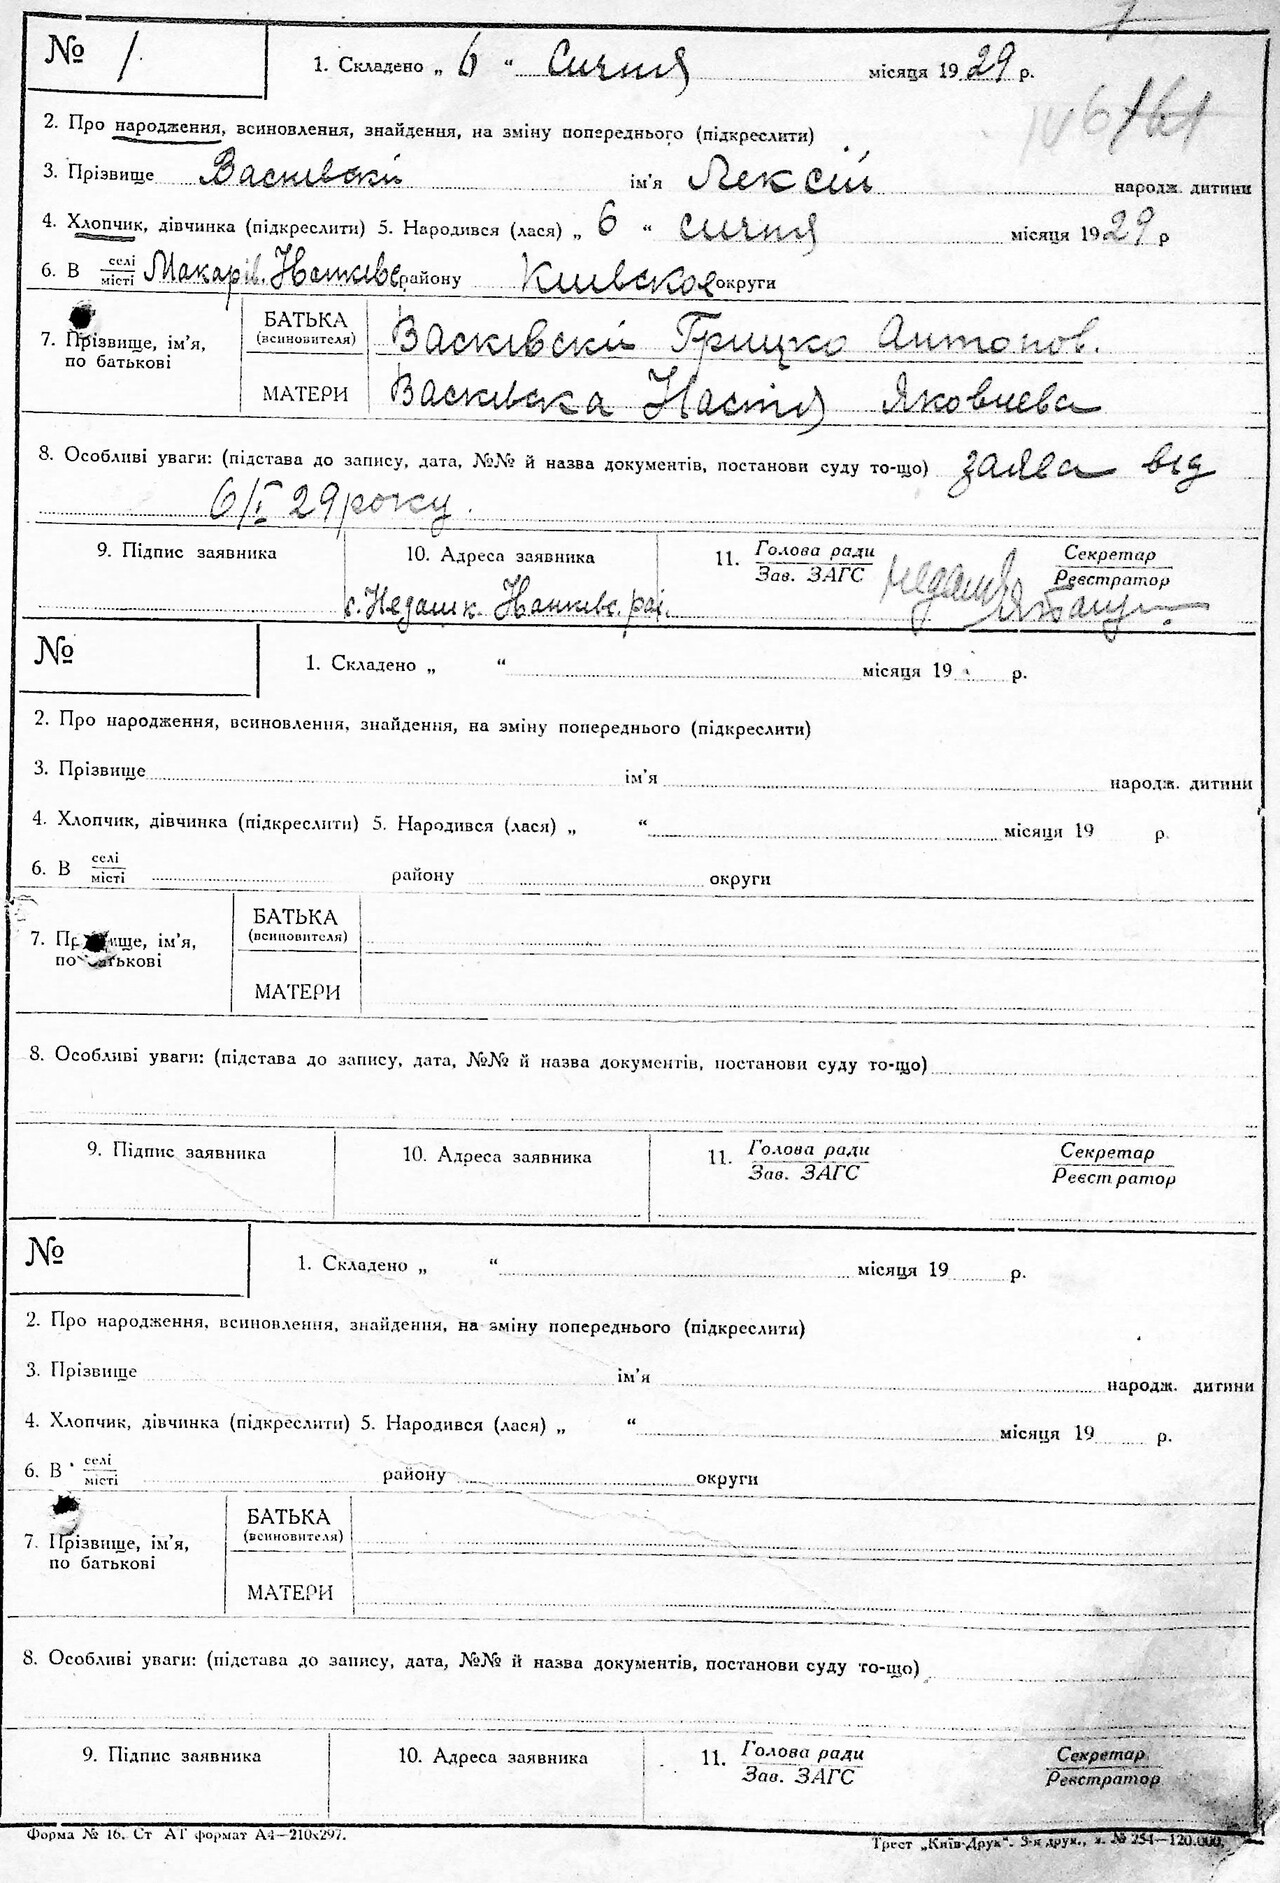 № 1. 1. Складено „ 6 “ Сичня місяця 1929 р.
2. Про народження, всиновлення, знайдення, на зміну попереднього (підкреслити)
3. Прізвище Васківскій ім'я Лексій народж. дитини
4. Хлопчик, дівчинка (підкреслити) 5. Народився (лася) „ 6 “ сичня місяця 1929 р
6. В селі/місті Макарів. району Киівскоє округи
7. Прізвище, ім'я, по батькові
БАТЬКА (всиновителя) Васківскій Грицко Антонов.
МАТЕРИ Васківска Настя Яковлева
8. Особливі уваги: (підстава до запису, дата, №№ й назва документів, постанови суду то-що) заява від
6/I 29 року.
9. Підпис заявника 10. Адреса заявника 11. Голова ради/Зав. ЗАГС Секретар/Реєстратор
с. Недашк.
№ 1. Складено „ “ місяця 19 р.
2. Про народження, всиновлення, знайдення, на зміну попереднього (підкреслити)
3. Прізвище ім'я народж. дитини
4. Хлопчик, дівчинка (підкреслити) 5. Народився (лася) „ “ місяця 19 р.
6. В селі/місті району округи
7. Прізвище, ім'я, по батькові
БАТЬКА (всиновителя)
МАТЕРИ
8. Особливі уваги: (підстава до запису, дата, №№ й назва документів, постанови суду то-що)
9. Підпис заявника 10. Адреса заявника 11. Голова ради/Зав. ЗАГС Секретар/Реєстратор
№ 1. Складено „ “ місяця 19 р.
2. Про народження, всиновлення, знайдення, на зміну попереднього (підкреслити)
3. Прізвище ім'я народж. дитини
4. Хлопчик, дівчинка (підкреслити) 5. Народився (лася) „ “ місяця 19 р.
6. В селі/місті району округи
7. Прізвище, ім'я, по батькові
БАТЬКА (всиновителя)
МАТЕРИ
8. Особливі уваги: (підстава до запису, дата, №№ й назва документів, постанови суду то-що)
9. Підпис заявника 10. Адреса заявника 11. Голова ради/Зав. ЗАГС Секретар/Реєстратор
Форма № 16. Ст АТ формат А4—210х297. Трест „Київ-Друк“. 3-я друк., з. № 254—120.000.